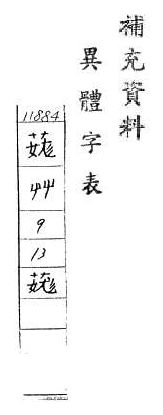 補充資料
異體字表
11884
艸
9
13